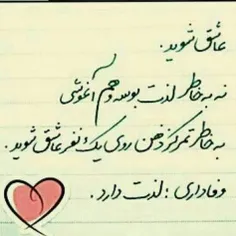 عاشق شوید.
نه به خاطر لذت بوسه و هم آغوشی
به خاطر تمرکز ذهن روی یک نفر عاشق شوید.
وفاداری: لذت دارد.